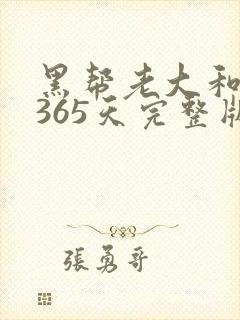 黑帮老大和
365天完整版
張勇哥